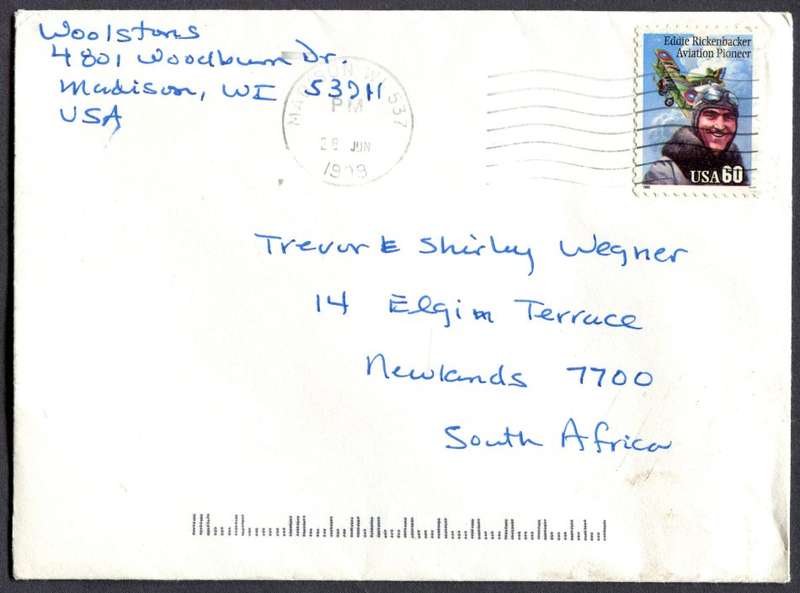 Woolstons
4801 Woodburn Dr.
Madison, WI 53711
USA
MADISON WI 537
PM
28 JUN
Eddie Rickenbacker
Aviation Pioneer
USA 60
Trevor & Shirley Wegner
14 Elgim Terrace
Newlands 7700
South Africa